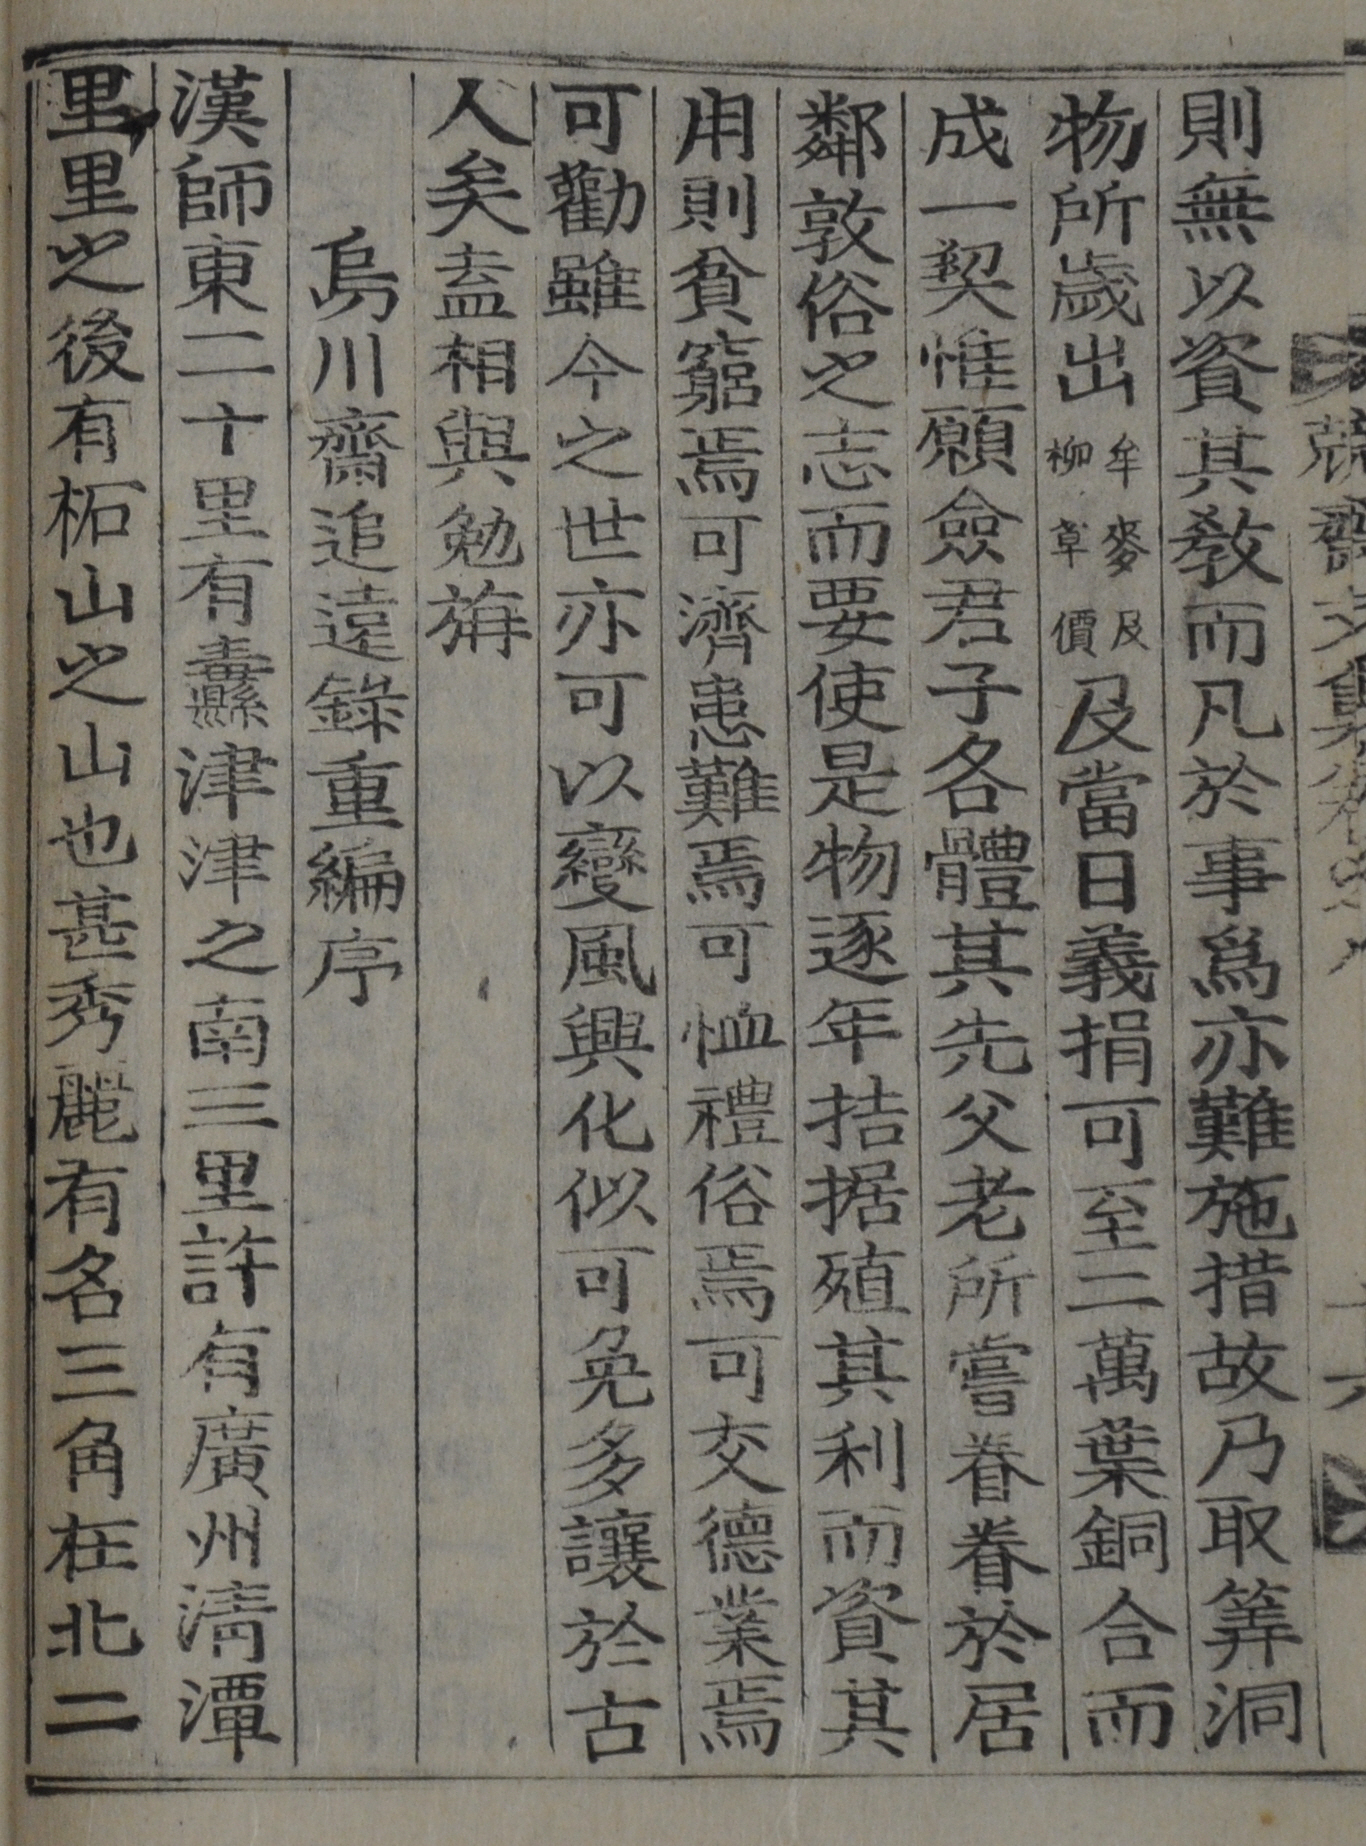 則無以資其敎而凡於事爲亦難施措故乃取筭洞
物所歲出牟麥及柳草價及當日義捐可至二萬葉銅合而
成一契惟願僉君子各體其先父老所嘗眷眷於居
鄰敦俗之志而要使是物逐年拮据殖其利而資其
用則貧窮焉可濟患難焉可恤禮俗焉可交德業焉
可勸雖今之世亦可以變風興化似可免多讓於古
人矣盍相與勉旃
烏川齋追遠錄重編序
漢師東二十里有纛津津之南三里許有廣州淸潭
里里之後有柘山之山也甚秀麗有名三角在北二